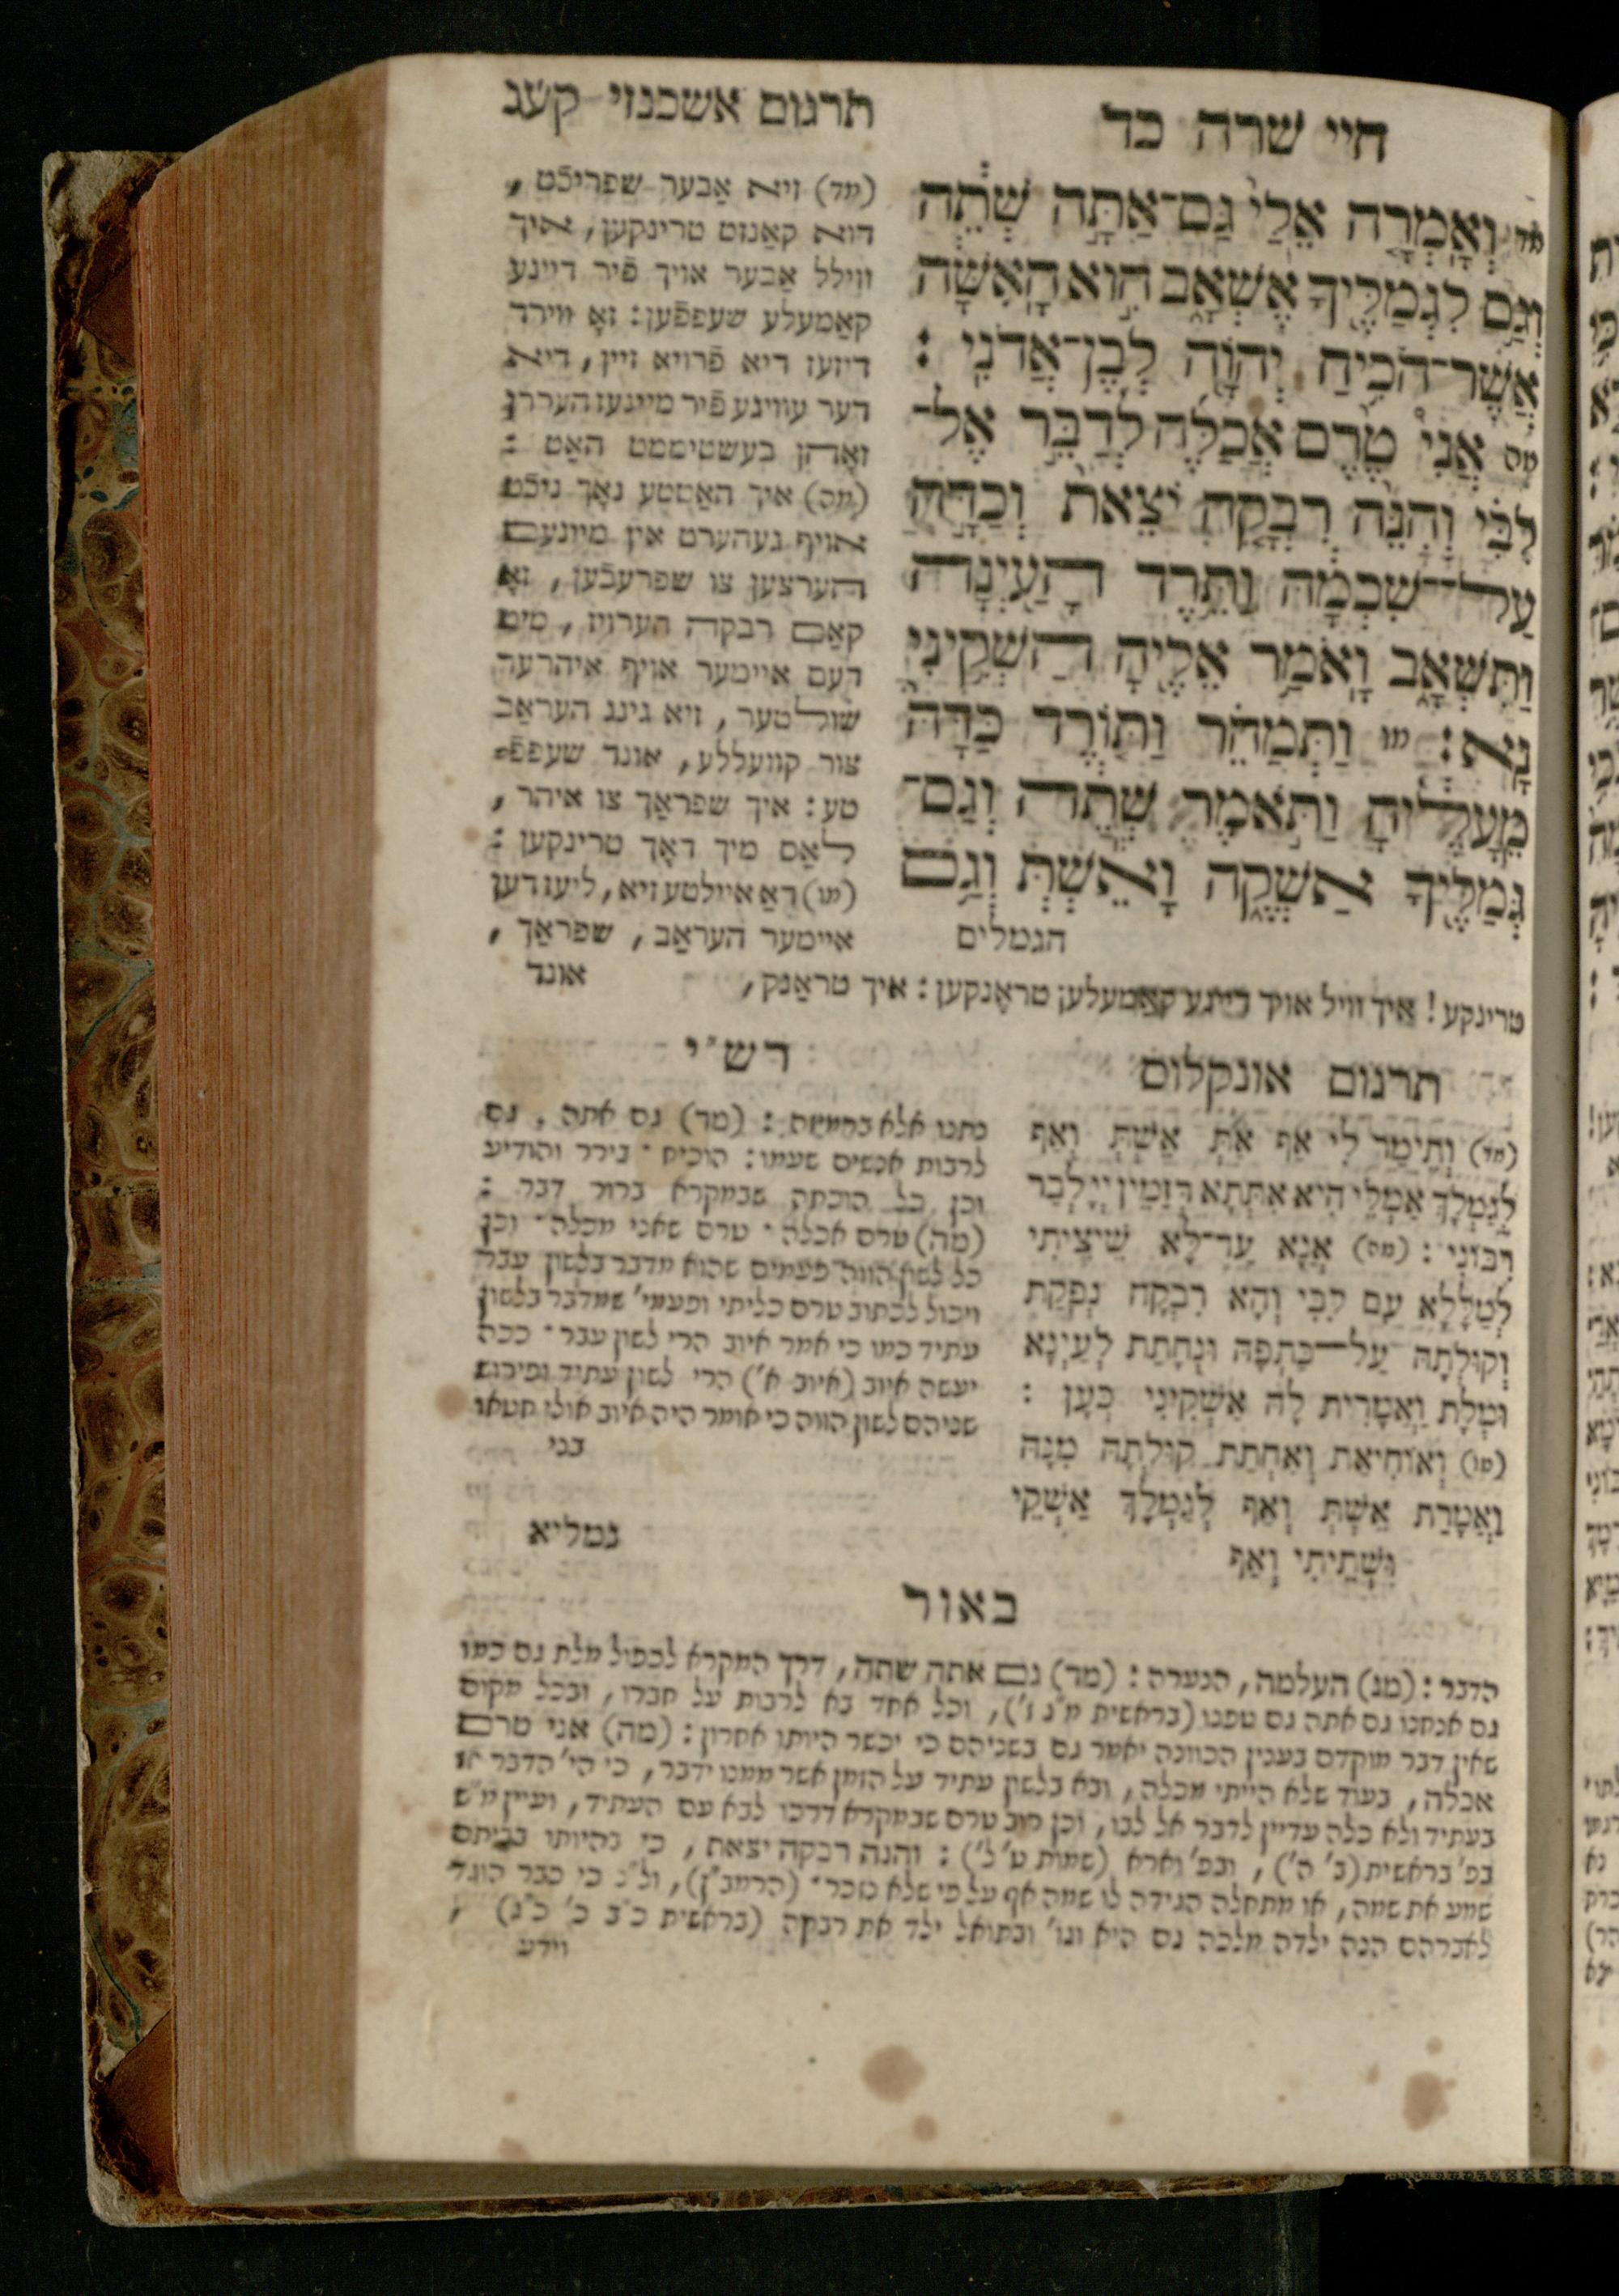 חיי שרה כד
תרגום אשכנזי קעג
מד וְאָמְרָה אֵלַי גַּם־אַתָּה שְׁתֵה
וְגַם לִגְמַלֶּיךָ אֶשְׁאָב הִוא הָאִשָּׁה
אֲשֶׁר־הֹכִיחַ יְהוָֹה לְבֶן־אֲדֹנִי :
מה אֲנִי טֶרֶם אֲכַלֶּה לְדַבֵּר אֶל־
לִבִּי וְהִנֵּה רִבְקָה יֹצֵאת וְכַדָּהּ
עַל־שִׁכְמָהּ וַתֵּרֶד הָעַיְנָה
וַתִּשְׁאָב וָאֹמַר אֵלֶיהָ הַשְׁקִינִי
נָא : מו וַתְּמַהֵר וַתּוֹרֶד כַּדָּהּ
מֵעָלֶיהָ וַתֹּאמֶר שְׁתֵה וְגַם־
גְּמַלֶּיךָ אַשְׁקֶה וָאֵשְׁתְּ וְגַם
הגמלים
(מד) זיא אַבער שפריכֿט ,
דוא קאַנזט טרינקען , איך
ווילל אַבער אויך פֿיר דיינע
קאַמעלע שעפפֿען : זאָ ווירד
דיזעז דיא פֿרויא זיין , דיא
דער עוויגע פֿיר מיינעז העררן
זאָהן בעשטיממט האַט :
(מה) איך האַטטע נאָך ניכֿט
אויף געהערט אין מיינעם
הערצען צו שפרעכֿען , זאָ
קאַם רבקה הערויז , מיט
דעם איימער אויף איהרער
שולטער , זיא גינג העראַב
צור קוועללע , אונד שעפפֿ־
טע : איך שפראַך צו איהר ,
לאַס מיך דאָך טרינקען :
(מו) דאַ איילטע זיא , ליעז דען
איימער העראַב , שפראַך ,
טרינקע ! איך וויל אויך דיינע קאַמעלע טראָנקען : איך טראַנק ,
אונד
תרגום אונקלוס
(מד) וְתֵימַר לִי אַף אַתְּ אֵשְׁתְּ וְאַף
לְגַמְלָךְ אַמְלֵי הִיא אִתְּתָא דְּזַמִּין יְיָ לְבַר
רִבּוֹנִי : (מה) אֲנָא עַד־לָא שֵׁיצֵיתִי
לְמַלָּלָא עִם לִבִּי וְהָא רִבְקָה נְפָקַת
וְקוּלְתָהּ עַל־כַּתְפָּהּ וּנְחָתַת לְעֵינָא
וּמְלָת וַאֲמָרִית לָהּ אַשְׁקִינִי כְּעָן :
(מו) וְאוֹחִיאַת וְאַחְתַת קוּלְתָהּ מִנַּהּ
וַאֲמָרַת אֵשְׁתְּ וְאַף לְגַמְלָךְ אַשְׁקֵי
וּשְׁתֵיתִי וְאַף
גמליא
רש״י
כתבו אלא ברמיזה : (מד) גם אתה . גם
לרבות אנשים שעמו : הוכיח ־ בירר והודיע
וכן כל הוכחה שבמקרא ברור דבר :
(מה) טרם אכלה ־ טרם שאני מכלה ־ וכן
כל לשון הווה פעמים שהוא מדבר בלשון עבר
ויכול לכתוב טרם כליתי ופעמי׳ שמדבר בלשון
עתיד כמו כי אמר איוב הרי לשון עבר ־ ככה
יעשה איוב (איוב א׳) הרי לשון עתיד ופירוש
שניהם לשון הווה כי אומר היה איוב אולי חטאו
בני
באור
הדבר : (מג) העלמה , הנערה : (מד) גם אתה שתה , דרך המקרא לכפול מלת גם כמו
גם אנחנו גם אתה גם טפנו (בראשית מ״ג ז׳) , וכל אחד בא לרבות על חברו , ובכל מקום
שאין דבר מוקדם בענין הכוונה יאמר גם בשניהם כי יכשר היותו אחרון : (מה) אני טרם
אכלה , בעוד שלא הייתי מכלה , ובא בלשון עתיד על הזמן אשר ממנו ידבר , כי הי׳ הדבר אז
בעתיד ולא כלה עדיין לדבר אל לבו , וכן רוב טרם שבמקרא דרכו לבא עם העתיד , ועיין מ״ש
בפ׳ בראשית (ב׳ ה׳) , ובפ׳ וארא (שמות ט׳ ל׳) : והנה רבקה יצאת , כי בהיותו בביתם
שמע את שמה , או מתחלה הגידה לו שמה אף על פי שלא נזכר ־ (הרמב״ן) , ול״נ כי כבר הוגד
לאברהם הנה ילדה מלכה גם היא וגו׳ ובתואל ילד את רבקה (בראשית כ״ב כ׳ כ״ג) ,
וידע